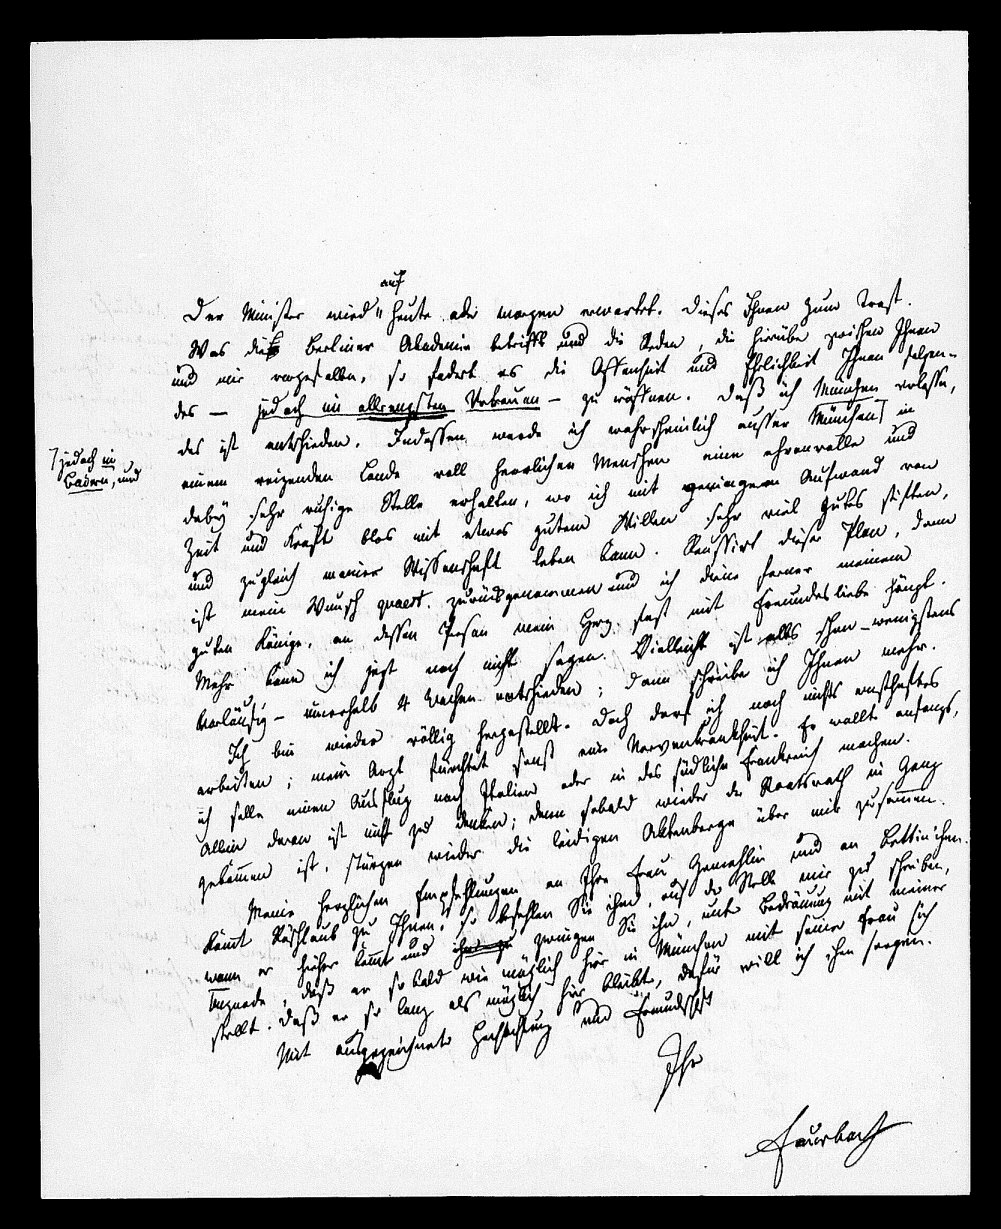 auf
Der Minister wird heute oder morgen erwartet. Dieses Ihnen zum Trost.
Was die Berliner Akademie betrifft und die Reden, die hierüber zwischen Ihnen
und mir vorgefallen, so fodert es die Offenheit und Ehrlichkeit Ihnen folgen-
des – jedoch im allerengsten Vertrauen – zu eröffnen. Daß ich München verlasse,
des ist entschieden. Indessen werde ich wahrscheinlich ausser München in
jedoch in
Baiern, und
einem reizenden Lande voll herrlicher Menschen eine ehrenvolle und
dabey sehr ruhige Stelle erhalten, wo ich mit geringerem Aufwand von
Zeit und Kraft blos mit etwas gutem Willen sehr viel Gutes stiften,
und zugleich meiner Wissenschaft leben kann. Reussirt dieser Plan, dann
ist mein Wunsch quaest. zurückgenommen und ich diene ferner meinem
guten Könige, an dessen Person mein Herz fest mit Freundesliebe hängt.
Mehr kann ich jezt noch nicht sagen. Vielleicht ist alles schon – wenigstens
vorläufig – innerhalb 4 Wochen entschieden; dann schreibe ich Ihnen mehr.
Ich bin wieder völlig hergestellt. Doch darf ich noch nichts ernsthaftes
arbeiten; mein Arzt fürchtet sonst eine Nervenkrankheit. Er wollte anfangs,
ich solle einen Ausflug nach Italien oder in das südliche Frankreich machen.
Allein daran ist nicht zu denken; denn sobald wieder der Staatsrath in Gang
gekommen ist, stürzen wieder die leidigen Aktenberge über mir zusammen.
Meine herzlichen Empfehlungen an Ihre Frau Gemahlin und an Bettin'chen.
Kömmt Röschlaub zu Ihnen, so befehlen Sie ihm, auf der Stelle mir zu schreiben,
wann er hieher kömmt und zwingen Sie ihn, unter Bedräuung mit meiner
Ungnade, daß er so bald wie möglich hier in München mit seiner Frau sich
stellt. Daß er so lang als möglich hier bleibt, dafür will ich schon sorgen.
Mit ausgezeichneter Hochachtung und Freundschaft
Ihr
Feuerbach